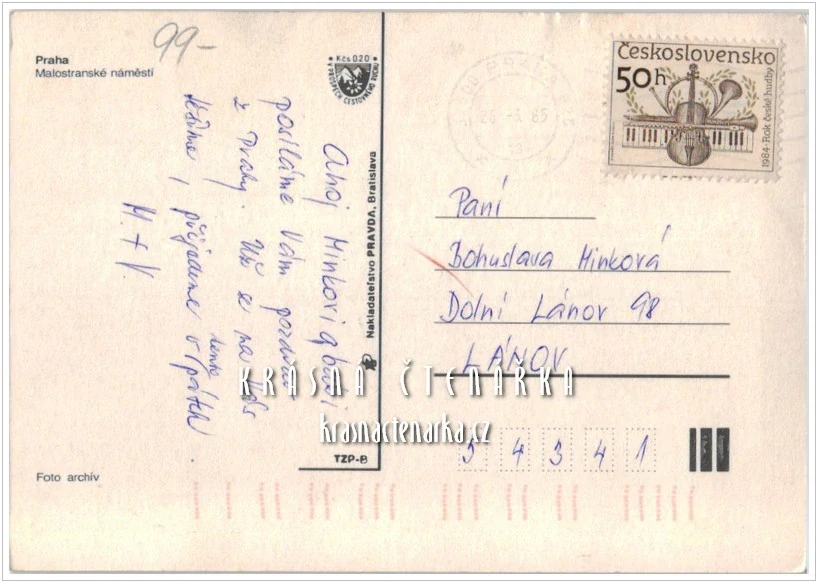 99-
Praha
Malostranské náměstí
Kčs 0.20
V PROSPĚCH CESTOVNÉHO RUCHU
Ahoj Minkovi a babi
posíláme Vám pozdrav
z Prahy. Už se na Vás
těšíme, přijedeme v pátek
tento
M. + V.
Nakladatelstvo PRAVDA, Bratislava
TZP-B
Foto archív
PRAHA
26.-3. 85
Československo
50h
1984 · Rok české hudby
Paní
Bohuslava Minková
Dolní Lánov 98
LÁNOV
54341
KRÁSNÁ ČTENÁŘKA
krasnactenarka.cz